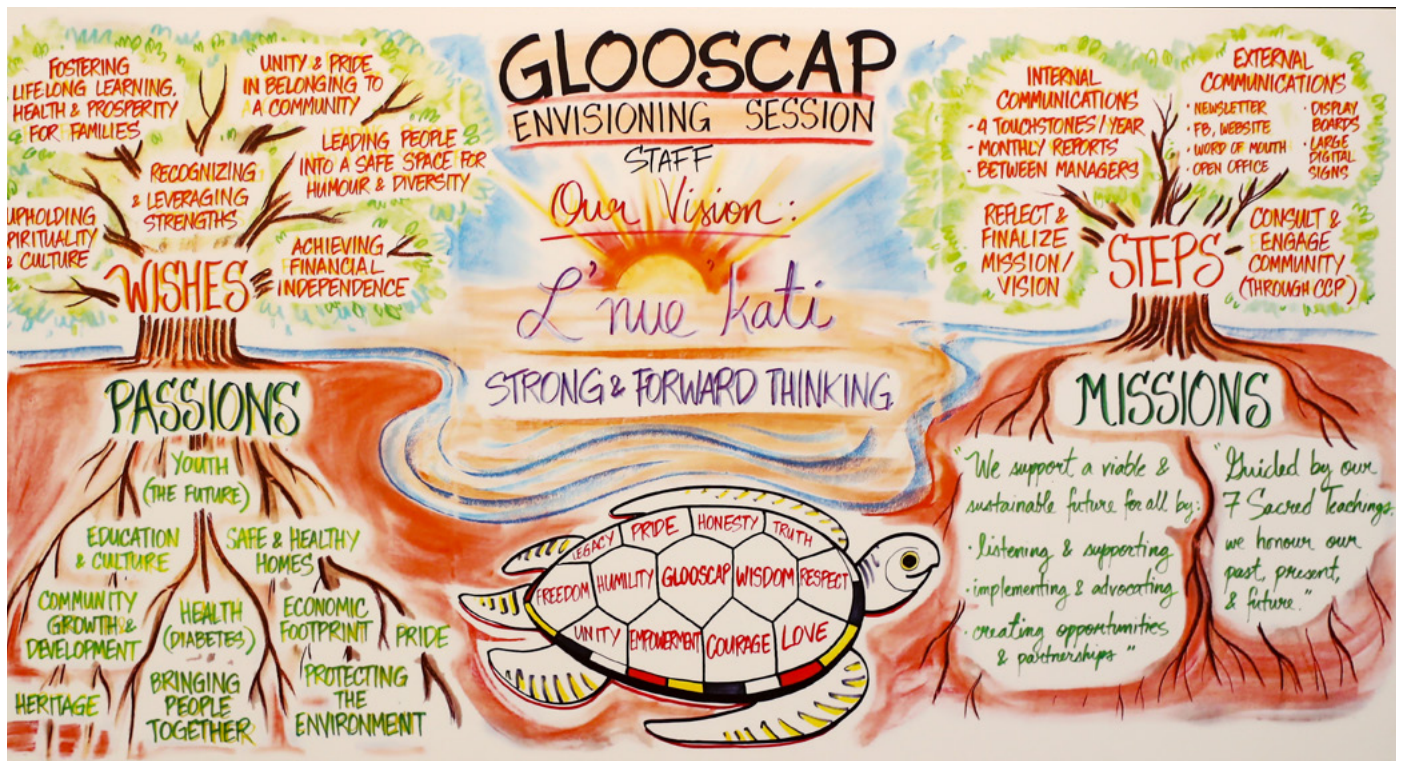 GLOOSCAP
ENVISIONING SESSION
STAFF
Our Vision:
L'nue'kati
STRONG & FORWARD THINKING
FOSTERING
LIFELONG LEARNING,
HEALTH & PROSPERITY
FOR FAMILIES
UNITY & PRIDE
IN BELONGING TO
A COMMUNITY
RECOGNIZING
& LEVERAGING
STRENGTHS
LEADING PEOPLE
INTO A SAFE SPACE FOR
HUMOUR & DIVERSITY
UPHOLDING
SPIRITUALITY
& CULTURE
ACHIEVING
FINANCIAL
INDEPENDENCE
WISHES
PASSIONS
YOUTH
(THE FUTURE)
EDUCATION
& CULTURE
SAFE & HEALTHY
HOMES
COMMUNITY
GROWTH &
DEVELOPMENT
HEALTH
(DIABETES)
ECONOMIC
FOOTPRINT
PRIDE
HERITAGE
BRINGING
PEOPLE
TOGETHER
PROTECTING
THE
ENVIRONMENT
LEGACY
PRIDE
HONESTY
TRUTH
FREEDOM
HUMILITY
GLOOSCAP
WISDOM
RESPECT
UNITY
EMPOWERMENT
COURAGE
LOVE
INTERNAL
COMMUNICATIONS
- 4 TOUCHSTONES/YEAR
- MONTHLY REPORTS
- BETWEEN MANAGERS
EXTERNAL
COMMUNICATIONS
• NEWSLETTER
• FB, WEBSITE
• WORD OF MOUTH
• OPEN OFFICE
• DISPLAY
BOARDS
• LARGE
DIGITAL
SIGNS
REFLECT &
FINALIZE
MISSION/
VISION
STEPS
CONSULT &
ENGAGE
COMMUNITY
(THROUGH CCP)
MISSIONS
"We support a viable &
sustainable future for all by:
• listening & supporting
• implementing & advocating
• creating opportunities
& partnerships"
"Guided by our
7 Sacred Teachings,
we honour our
past, present,
& future."